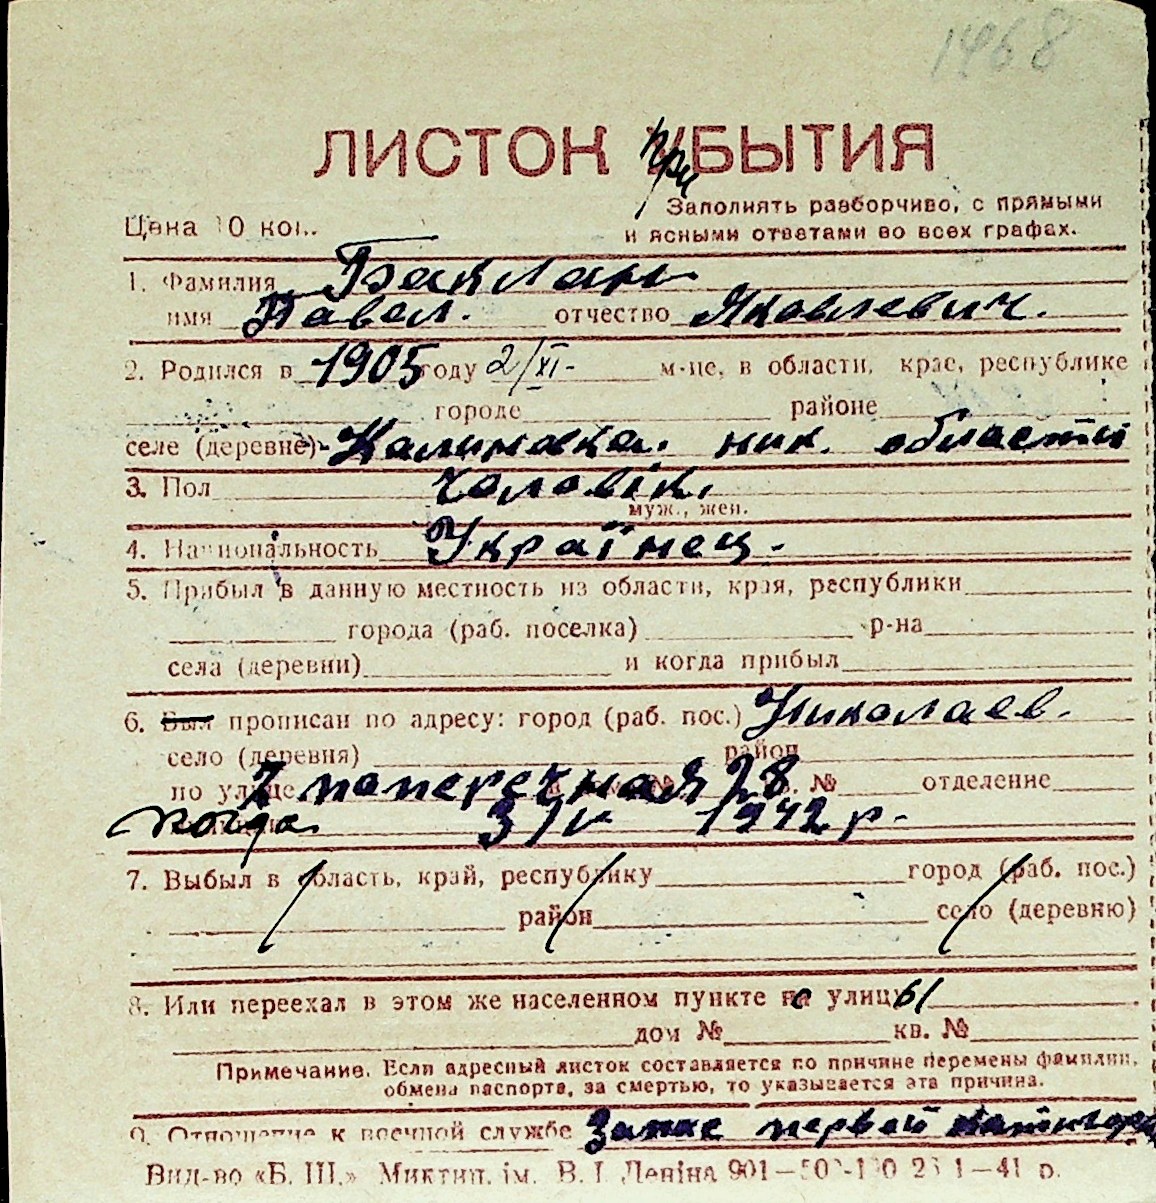 1468
ЛИСТОК при УБЫТИЯ
Заполнять разборчиво, с прямыми
Цена 10 коп.
и ясными ответами во всех графах.
1. Фамилия Баклан
имя Павел. отчество Яковлевич.
2. Родился в 1905 году 2/XI- м-це, в области, крае, республике
городе районе
селе (деревне) Калиновка. ник. области
3. Пол Чоловік.
муж., жен.
4. Национальность Українец.
5. Прибыл в данную местность из области, края, республики
города (раб. поселка) р-на
села (деревни) и когда прибыл
6. Был прописан по адресу: город (раб. пос.) Николаев.
село (деревня) район
по улице 7 поперечная 28 кв. № отделение
когда 3/IV 1942 р.
7. Выбыл в область, край, республику город (раб. пос.)
район село (деревню)
8. Или переехал в этом же населенном пункте с улицы
дом № кв. №
Примечание. Если адресный листок составляется по причине перемены фамилии,
обмена паспорта, за смертью, то указывается эта причина.
9. Отношение к военной службе Запас первой
Вид-во «Б. Ш.» Миктип. ім. В. І. Леніна 901—500-100 23 1—41 р.